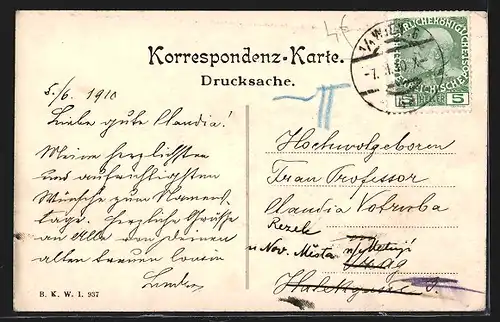 Korrespondenz-Karte.
Drucksache.
5./6. 1910
Liebe gute Claudia!
Meine herzlichsten
und aufrichtigsten
Wünsche zum Namens-
tage. Herzliche Grüsse
an Alle von deinem
alten treuen Cousin
B. K. W. I. 937
Hochwolgeboren
Frau Professor
Claudia Votruba
Rezek
u Nov. Města n/Metují
5